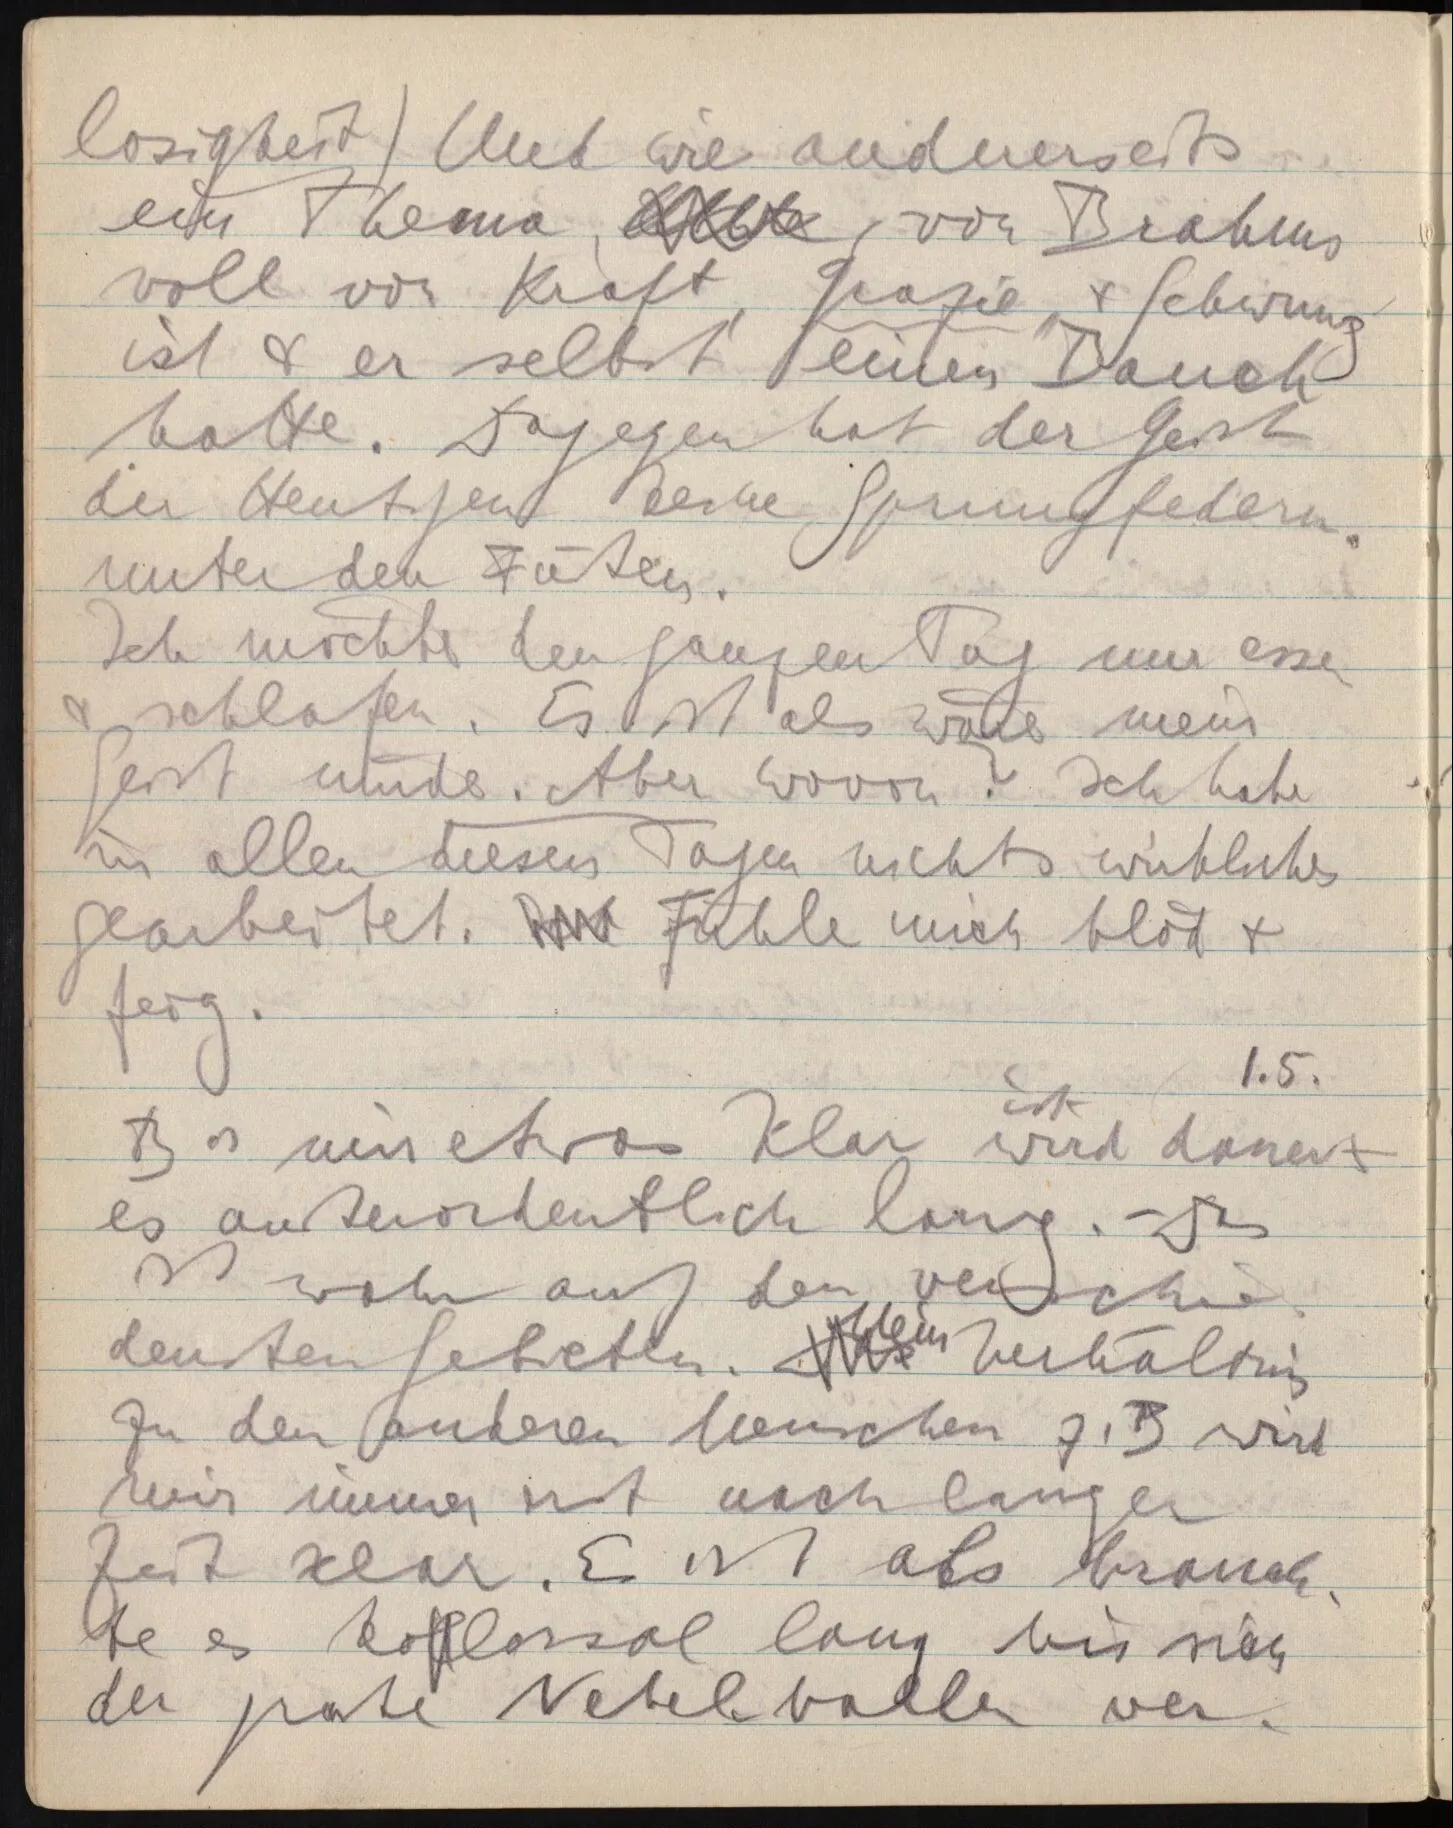 losigkeit) Und wie andererseits
ein Thema, von Brahms
voll von Kraft, Grazie, & Schwung
ist & er selbst einen Bauch
hatte. Dagegen hat der Geist
der Heutigen keine Sprungfedern
unter den Füßen.
Ich möchte den ganzen Tag nur essen
& schlafen. Es ist als wäre mein
Geist müde. Aber wovon? Ich habe
in allen diesen Tagen nichts wirkliches
gearbeitet. Fühle mich blöd &
feig.
1.5.
Bis mir etwas klar ist wird dauert
es außerordentlich lang. – Das
ist wahr auf den verschie-
densten Gebieten. Mein Verhältnis
zu den anderen Menschen z.B wird
mir immer erst nach langer
Zeit klar. Es ist als brauch-
te es kolossal lang bis sich
der große Nebelballen ver-